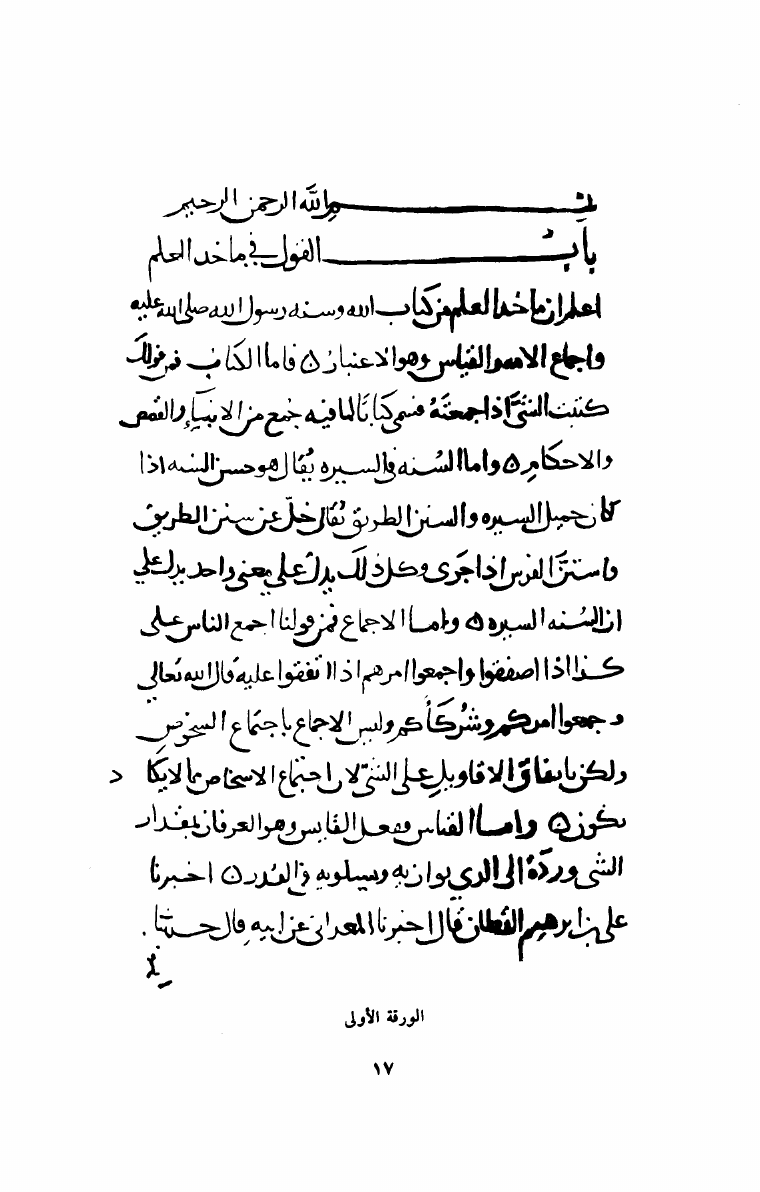 بسم الله الرحمن الرحيم
باب القول في ماخذ العلم
اعلم ان ماخذ العلم من كتاب الله وسنه رسول الله صلى الله عليه
واجماع الامه والقياس وهو الاعتبار ۞ فاما الكتاب فمن قولك
كتبت الشئ اذا جمعته فسمى كتابا لما فيه جمع من الانبياء والقصص
والاحكام ۞ واما السنه فالسيره يقال هو حسن السنه اذا
كان جميل السيره والسنن الطريق يقال خل عن سنن الطريق
واستن الفرس اذا جرى وكل ذلك يدل على معنى واحد يدل على
ان السنه السيره ۞ واما الاجماع فمن قولنا اجمع الناس على
كذا اذا اصفقوا واجمعوا امرهم اذا اتفقوا عليه قال الله تعالى
وجمعوا امركم وشركاكم وليس الاجماع باجتماع الشخوص
ولكن باتفاق الاقاويل على الشئ لان اجتماع الاشخاص مما لا يكاد
يكون ۞ واما القياس ففعل القايس وهو العرفان بمقدار
الشئ ورده الى الذي يوازيه ويساويه في القدر ۞ اخبرنا
على بن ابرهيم القطان قال اخبرنا المعدانى عن ابيه قال حدثنا
الورقة الأولى
١٧